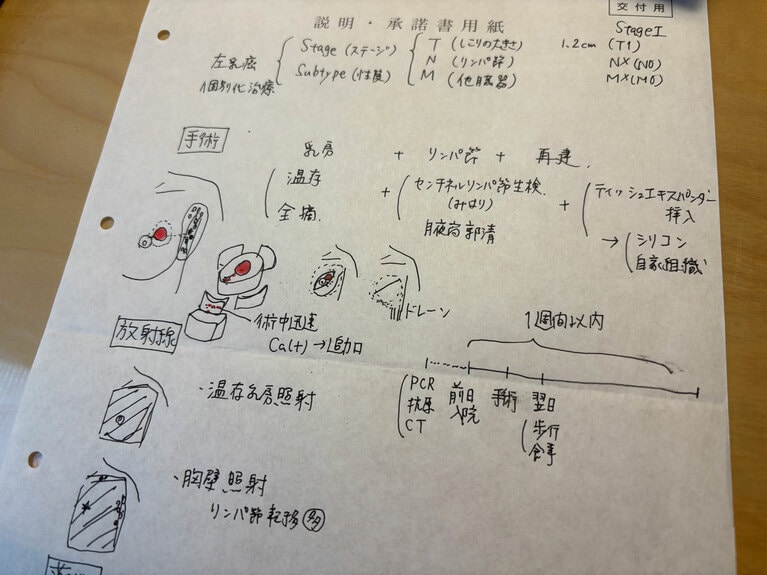 交付用
説明・承諾書用紙
Stage I
左乳癌
個別化治療
Stage (ステージ)
Subtype (性質)
T (しこりの大きさ) 1.2cm (T1)
N (リンパ節) NX (N0)
M (他臓器) MX (M0)
手術
乳房 + リンパ節 + 再建
温存
全摘
+
センチネルリンパ節生検
(みはり)
腋窩郭清
+
ティッシュエキスパンダー
挿入
→ シリコン
自家組織
ドレーン
術中迅速
Ca(+) → 追加
放射線
1週間以内
・温存乳房照射
PCR
抗原
CT
前日
入院
手術
翌日
歩行
食事
・胸壁照射
リンパ節転移 多